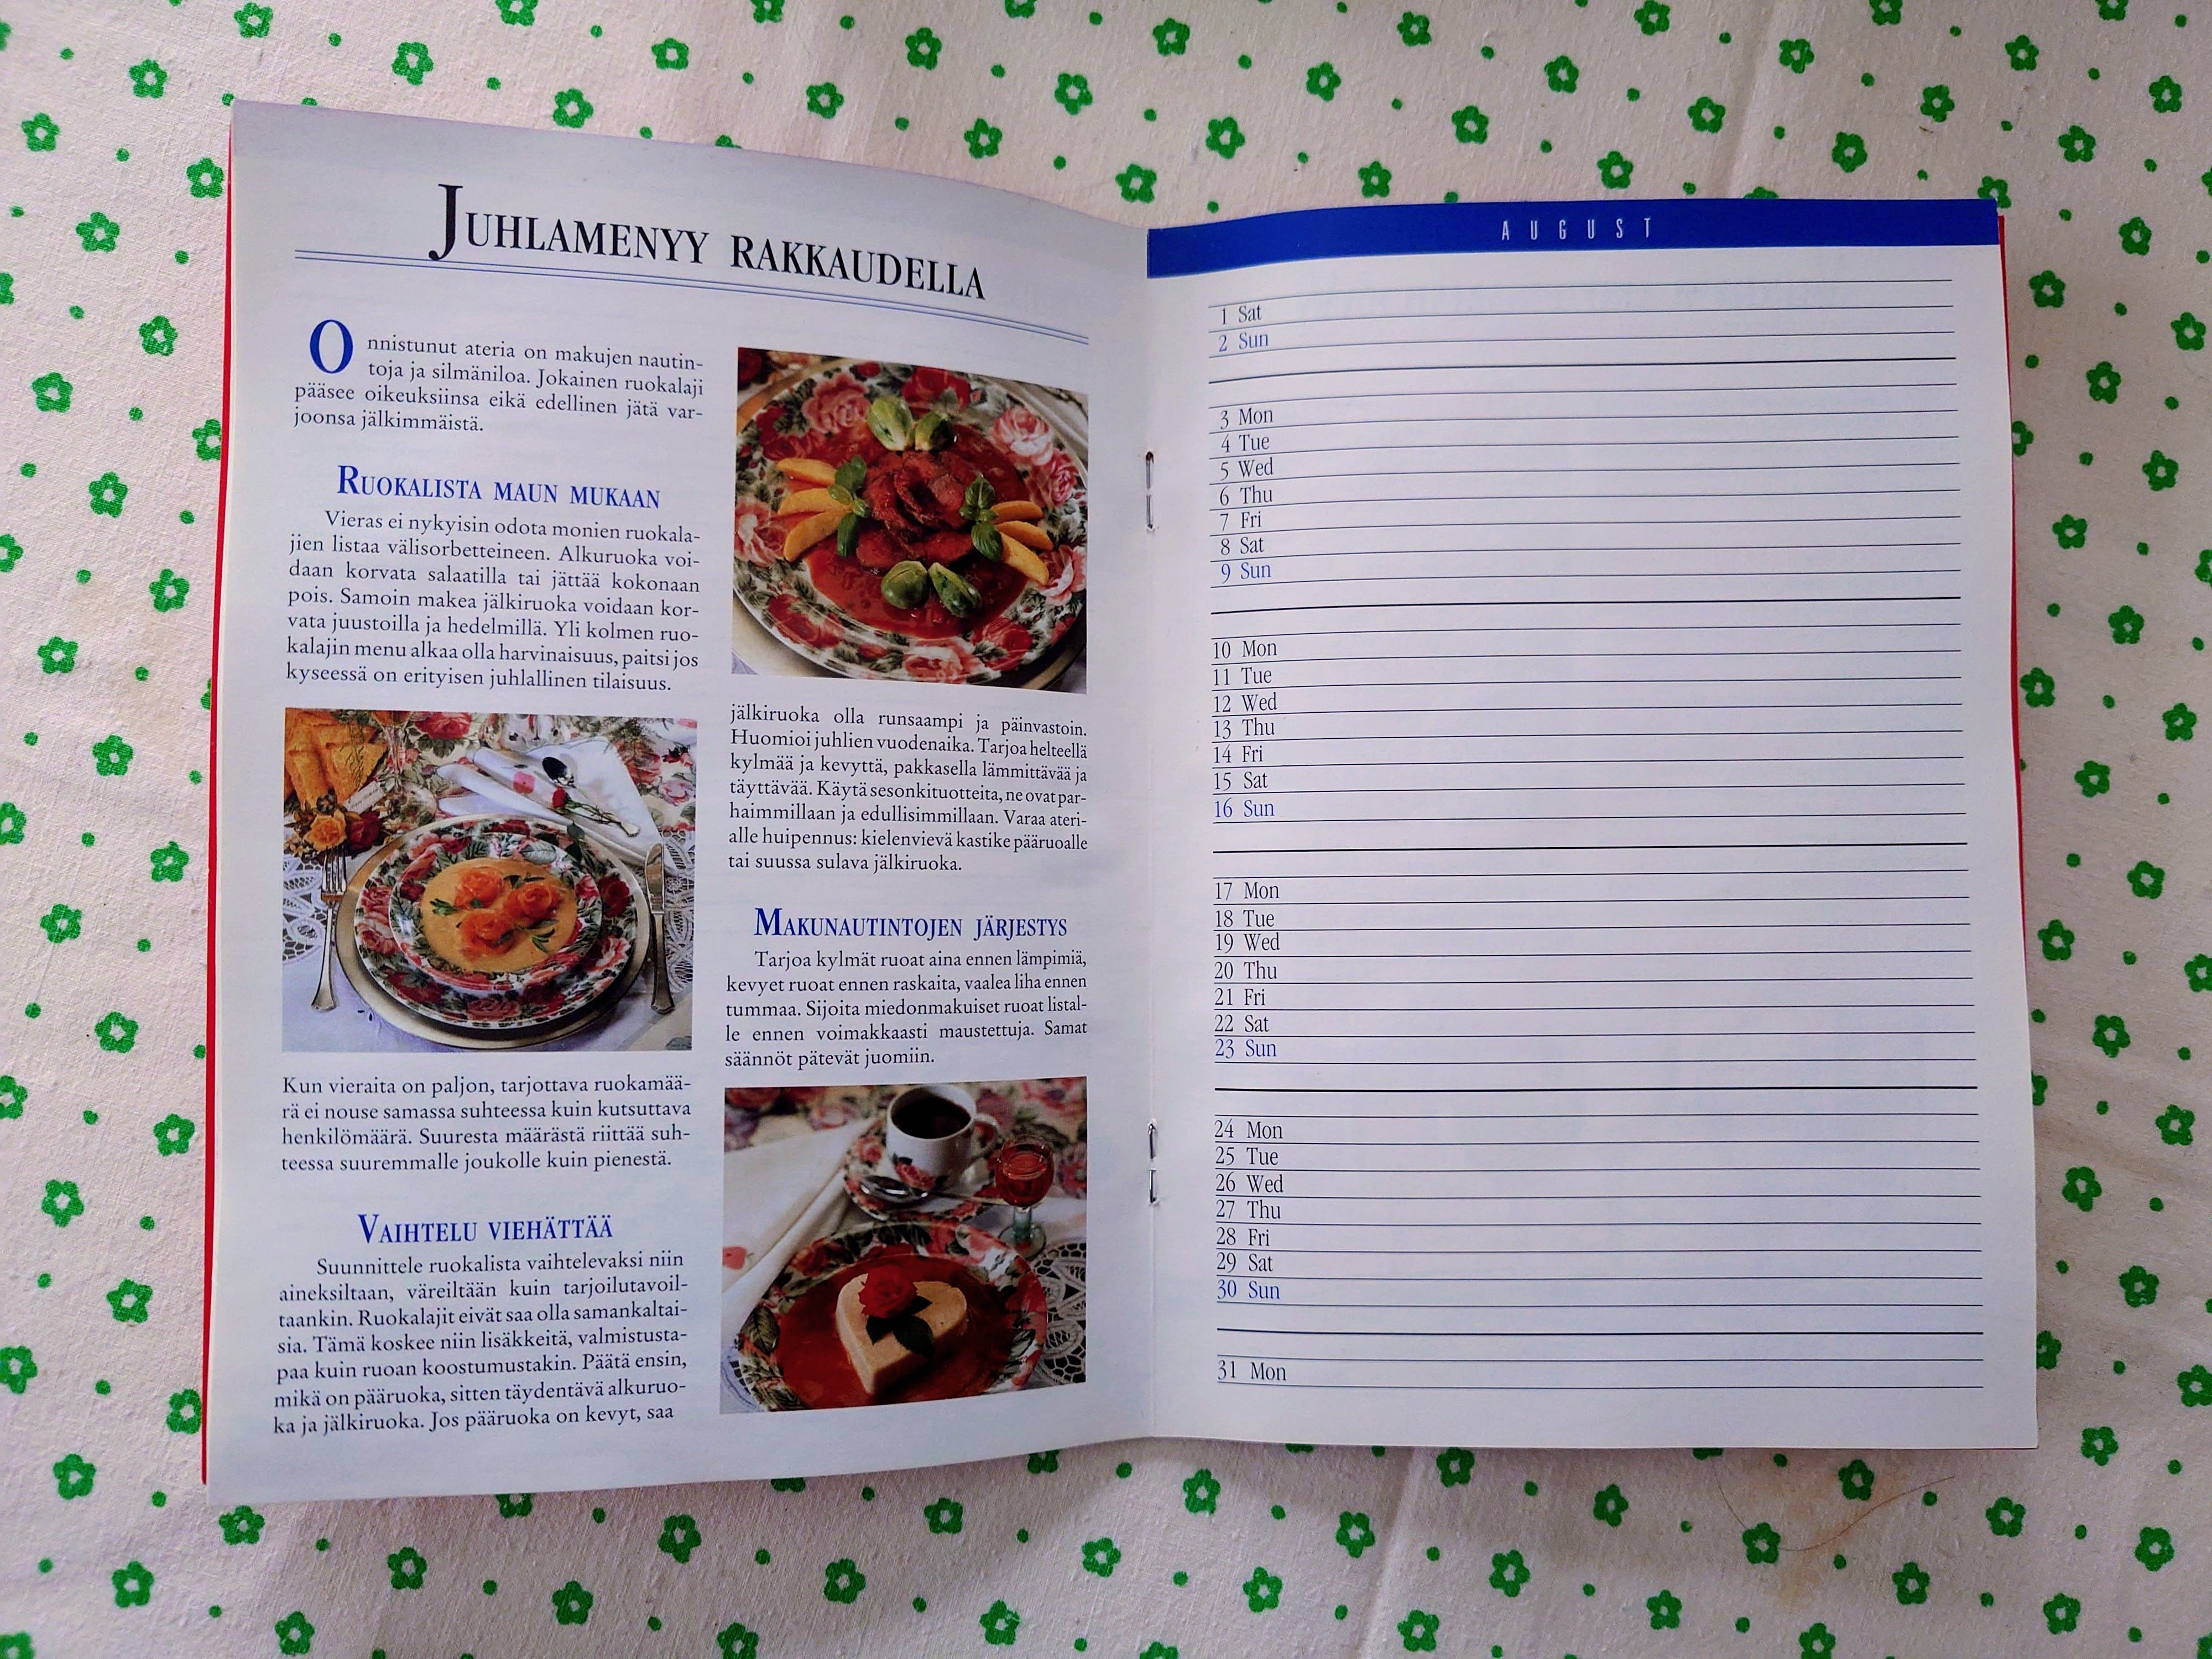 JUHLAMENYY RAKKAUDELLA
Onnistunut ateria on makujen nautin-
toja ja silmäniloa. Jokainen ruokalaji
pääsee oikeuksiinsa eikä edellinen jätä var-
joonsa jälkimmäistä.
RUOKALISTA MAUN MUKAAN
Vieras ei nykyisin odota monien ruokala-
jien listaa välisorbetteineen. Alkuruoka voi-
daan korvata salaatilla tai jättää kokonaan
pois. Samoin makea jälkiruoka voidaan kor-
vata juustoilla ja hedelmillä. Yli kolmen ruo-
kalajin menu alkaa olla harvinaisuus, paitsi jos
kyseessä on erityisen juhlallinen tilaisuus.
Kun vieraita on paljon, tarjottava ruokamää-
rä ei nouse samassa suhteessa kuin kutsuttava
henkilömäärä. Suuresta määrästä riittää suh-
teessa suuremmalle joukolle kuin pienestä.
VAIHTELU VIEHÄTTÄÄ
Suunnittele ruokalista vaihtelevaksi niin
aineksiltaan, väreiltään kuin tarjoilutavoil-
taankin. Ruokalajit eivät saa olla samankaltai-
sia. Tämä koskee niin lisäkkeitä, valmistusta-
paa kuin ruoan koostumustakin. Päätä ensin,
mikä on pääruoka, sitten täydentävä alkuruo-
ka ja jälkiruoka. Jos pääruoka on kevyt, saa
jälkiruoka olla runsaampi ja päinvastoin.
Huomioi juhlien vuodenaika. Tarjoa helteellä
kylmää ja kevyttä, pakkasella lämmittävää ja
täyttävää. Käytä sesonkituotteita, ne ovat par-
haimmillaan ja edullisimmillaan. Varaa ateri-
alle huipennus: kielenvievä kastike pääruoalle
tai suussa sulava jälkiruoka.
MAKUNAUTINTOJEN JÄRJESTYS
Tarjoa kylmät ruoat aina ennen lämpimiä,
kevyet ruoat ennen raskaita, vaalea liha ennen
tummaa. Sijoita miedonmakuiset ruoat listal-
le ennen voimakkaasti maustettuja. Samat
säännöt pätevät juomiin.
AUGUST
1 Sat
2 Sun
3 Mon
4 Tue
5 Wed
6 Thu
7 Fri
8 Sat
9 Sun
10 Mon
11 Tue
12 Wed
13 Thu
14 Fri
15 Sat
16 Sun
17 Mon
18 Tue
19 Wed
20 Thu
21 Fri
22 Sat
23 Sun
24 Mon
25 Tue
26 Wed
27 Thu
28 Fri
29 Sat
30 Sun
31 Mon